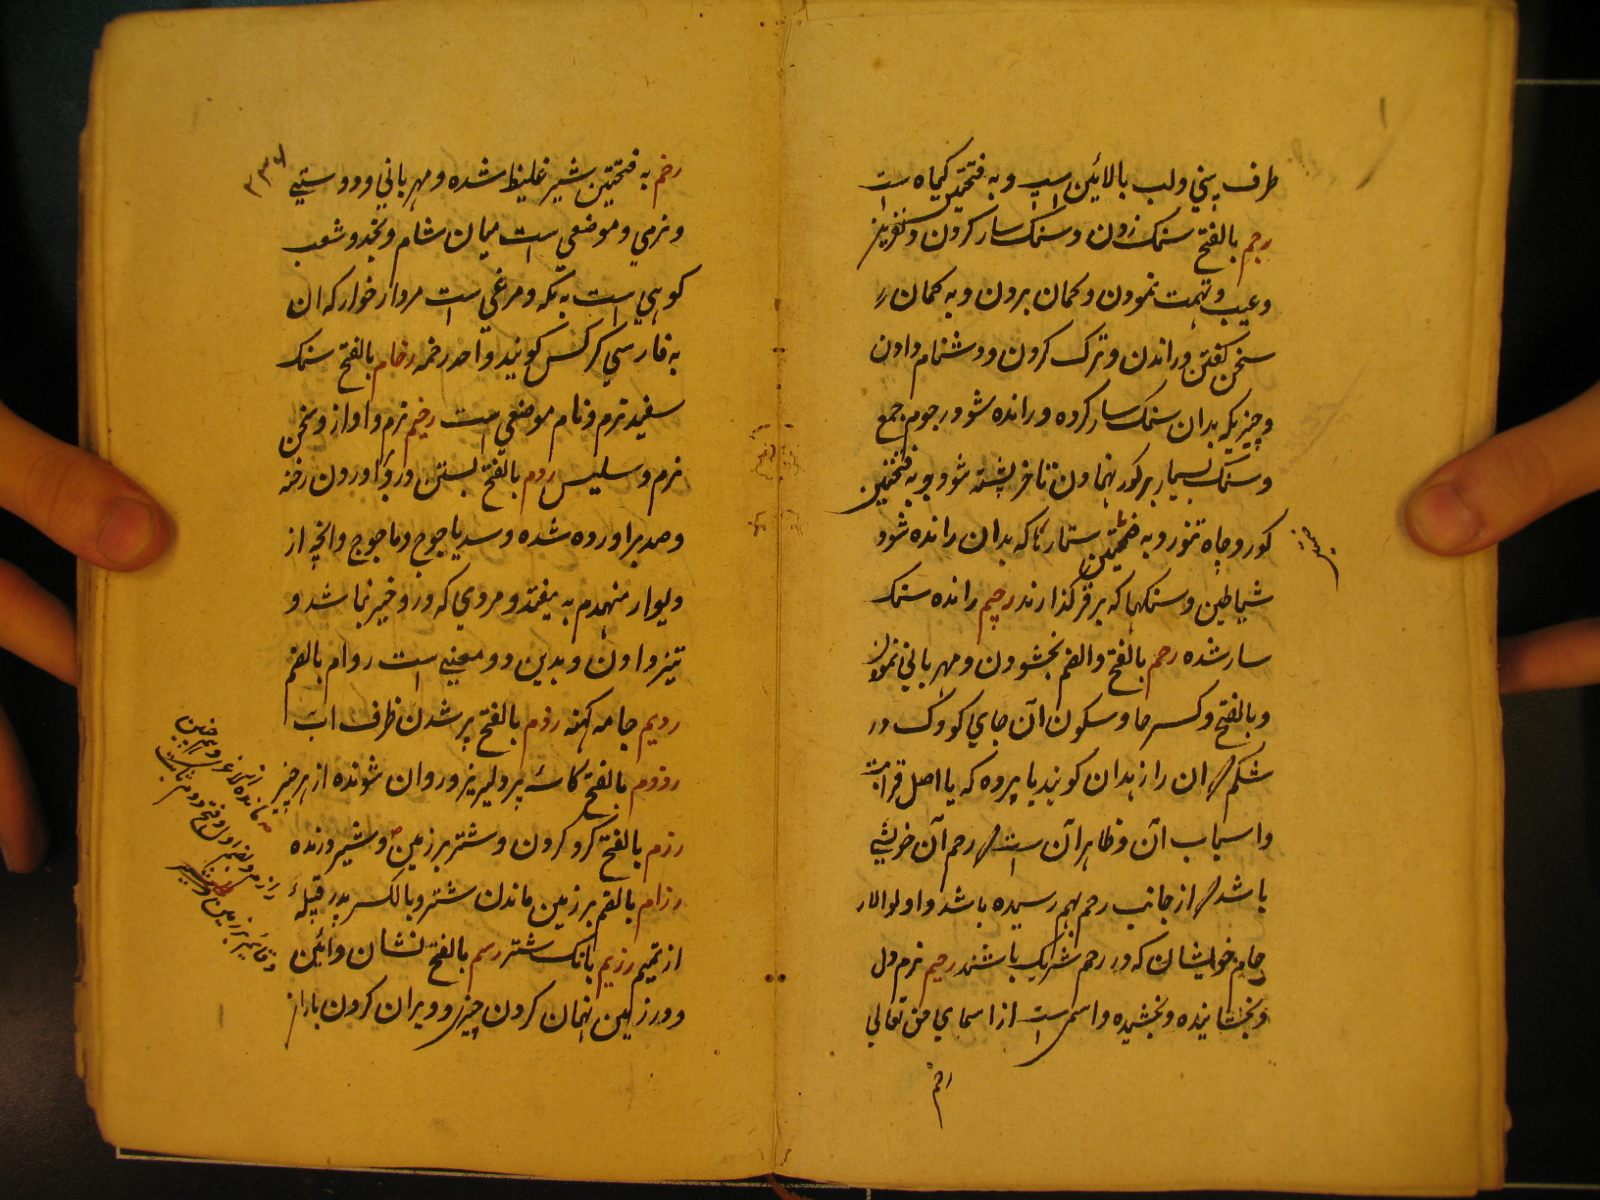 طرف بيني ولب بالائين اسپ و به فتحتين گياه است
رجم بالفتح سنگ زدن و سنگسار کردن و نفرين
و عيب و تهمت نمودن و گمان بردن و به گمان
سخن گفتن و راندن و ترک کردن و دشنام دادن
و چيزيکه بدان سنگسار کرده و رانده شود رجوم جمع
و سنگ بسيار بر گور نهادن تا خرپشته شود و به فتحتين
گور و چاه تنور و به ضمتين ستارها که بدان رانده شود
شياطين و سنگها که بر قبر گذارند رجيم رانده سنگ
سار شده رحم بالفتح والضم بخشودن و مهرباني نمودن
و بالفتح و کسر حا و سکون آن جاي کودک در
شکم ان را زهدان گويند يا پرده که يا اصل قرابت
و اسباب آن و ظاهر آن است رحم آن خويشي
باشد از جانب رحم بهم رسيده باشد و اولوالار
حام خويشان که در رحم شريک باشند رحيم نرم دل
و بخشاينده و بخشيده و اسمي است از اسماي حق تعالي
رخم
رخم به فتحتين شير غليظ شده و مهرباني و دوستي
و نرمي و موضعي است ميان شام و نجد و شعب
کوهي است به مکه و مرغي است مردار خوار که ان
به فارسي کرکس گويند واحد رخمه رخام بالفتح سنگ
سفيد نرم و نام موضعي است رخيم نرم و اواز و سخن
نرم و سليس ردم بالفتح بستن در و براوردن رخنه
و صد براورده شده و سد ياجوج و ماجوج و انچه از
ديوار منهدم به يفتد و مردي که درو خير نباشد و
تيز دادن و بدين دو معني است ردام بالضم
رديم جامه کهنه رذم بالفتح پر شدن ظرف اب
رذوم بالفتح کاسه پر و لبريز و روان شونده از هر چيز
رزم بالفتح گرد کردن و شتر بر زمين و شير درنده
رزام بالضم بر زمين ماندن شتر و بالکسر پدر قبيله
از تميم رزيم بانگ شتر رسم بالفتح نشان و آئين
و در زمين نهان کردن چيز و ويران کردن باران